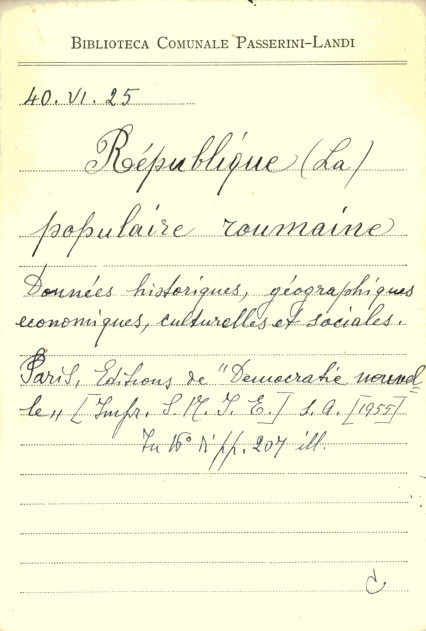 BIBLIOTECA COMUNALE PASSERINI-LANDI
40. VI. 25
République (La)
populaire roumaine
Données historiques, géographiques
economiques, culturelles et sociales.
Paris, Editions de "Democratie nouvel
le" [Impr. S. N. I. E.] s. a. [1955]
In 16° di pp. 207 ill.